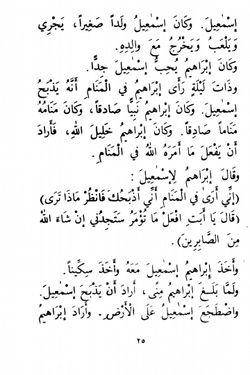 إسْمٰعِيلَ. وَكَانَ إسْمٰعِيلُ وَلَداً صَغِيراً، يَجْرِي
وَيَلْعَبُ وَيَخْرُجُ مَعَ وَالِدِهِ.
وَكَانَ إبْرَاهِيمُ يُحِبُّ إسْمٰعِيلَ جِدًّا.
وَذَاتَ لَيْلَةٍ رَأَى إبْرَاهِيمُ فِي الْمَنَامِ أَنَّهُ يَذْبَحُ
إسْمٰعِيلَ. وَكَانَ إبْرَاهِيمُ نَبِيًّا صَادِقاً، وَكَانَ مَنَامُهُ
مَنَاماً صَادِقاً. وَكَانَ إبْرَاهِيمُ خَلِيلَ اللهِ، فَأَرَادَ
أَنْ يَفْعَلَ مَا أَمَرَهُ اللهُ فِي الْمَنَامِ.
وَقَالَ إبْرَاهِيمُ لِإسْمٰعِيلَ:
(إنِّي أَرَى فِي الْمَنَامِ أَنِّي أَذْبَحُكَ فَانْظُرْ مَاذَا تَرَى)
(قَالَ يَا أَبَتِ افْعَلْ مَا تُؤْمَرُ سَتَجِدُنِي إنْ شَاءَ اللهُ
مِنَ الصَّابِرِينَ).
وَأَخَذَ إبْرَاهِيمُ إسْمٰعِيلَ مَعَهُ وَأَخَذَ سِكِّيناً.
وَلَمَّا بَلَغَ إبْرَاهِيمُ مِنًى، أَرَادَ أَنْ يَذْبَحَ إسْمٰعِيلَ.
وَاضْطَجَعَ إسْمٰعِيلُ عَلَى الْأَرْضِ. وَأَرَادَ إبْرَاهِيمُ
٢٥